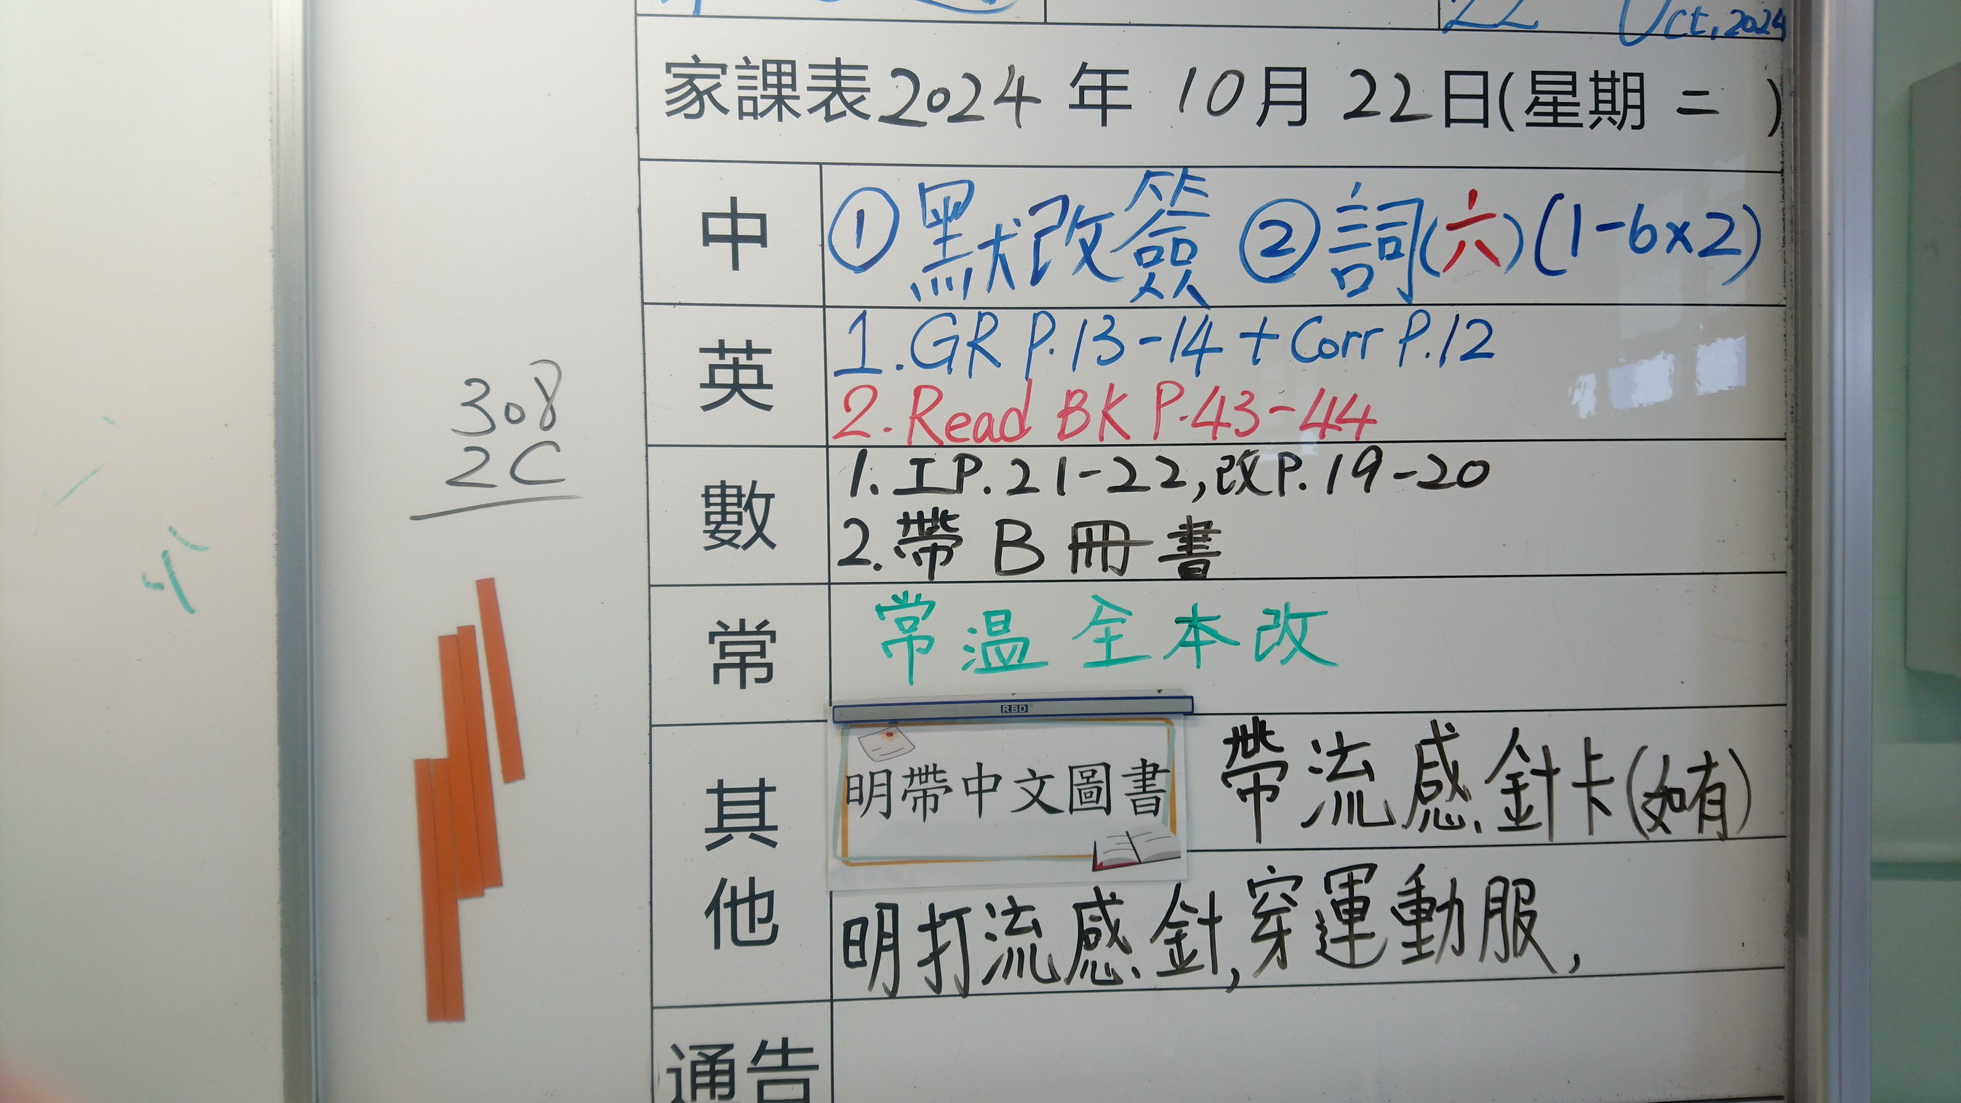 22 Oct, 2024
家課表2024年10月22日(星期二)
中
①默改簽 ②詞(六)(1-6x2)
英
1. GR P.13-14 + Corr P.12
2. Read BK P.43-44
數
1. 工P.21-22,改P.19-20
2. 帶B冊書
常
常温全本改
308
2C
其他
RBD
明帶中文圖書
帶流感針卡(如有)
明打流感針,穿運動服,
通告